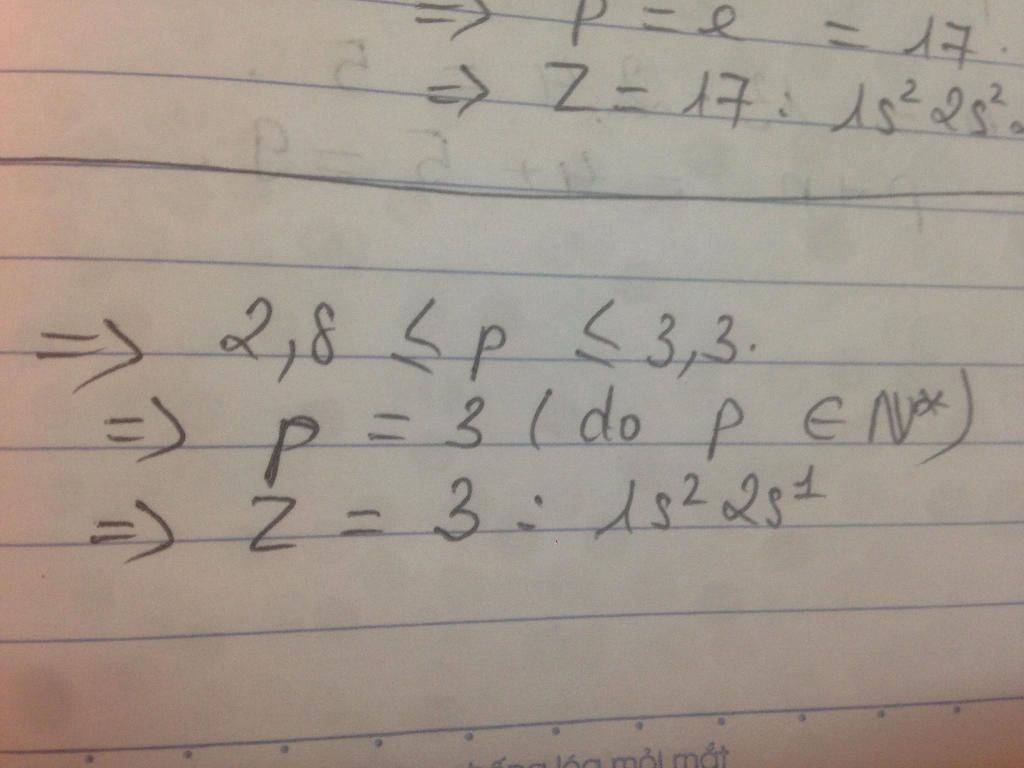 => p = e = 17.
=> Z = 17 : 1s² 2s²
=> 2,8 ≤ p ≤ 3,3.
=> p = 3 ( do p ∈ N*)
=> Z = 3 : 1s² 2s¹
chống lóa mỏi mắt